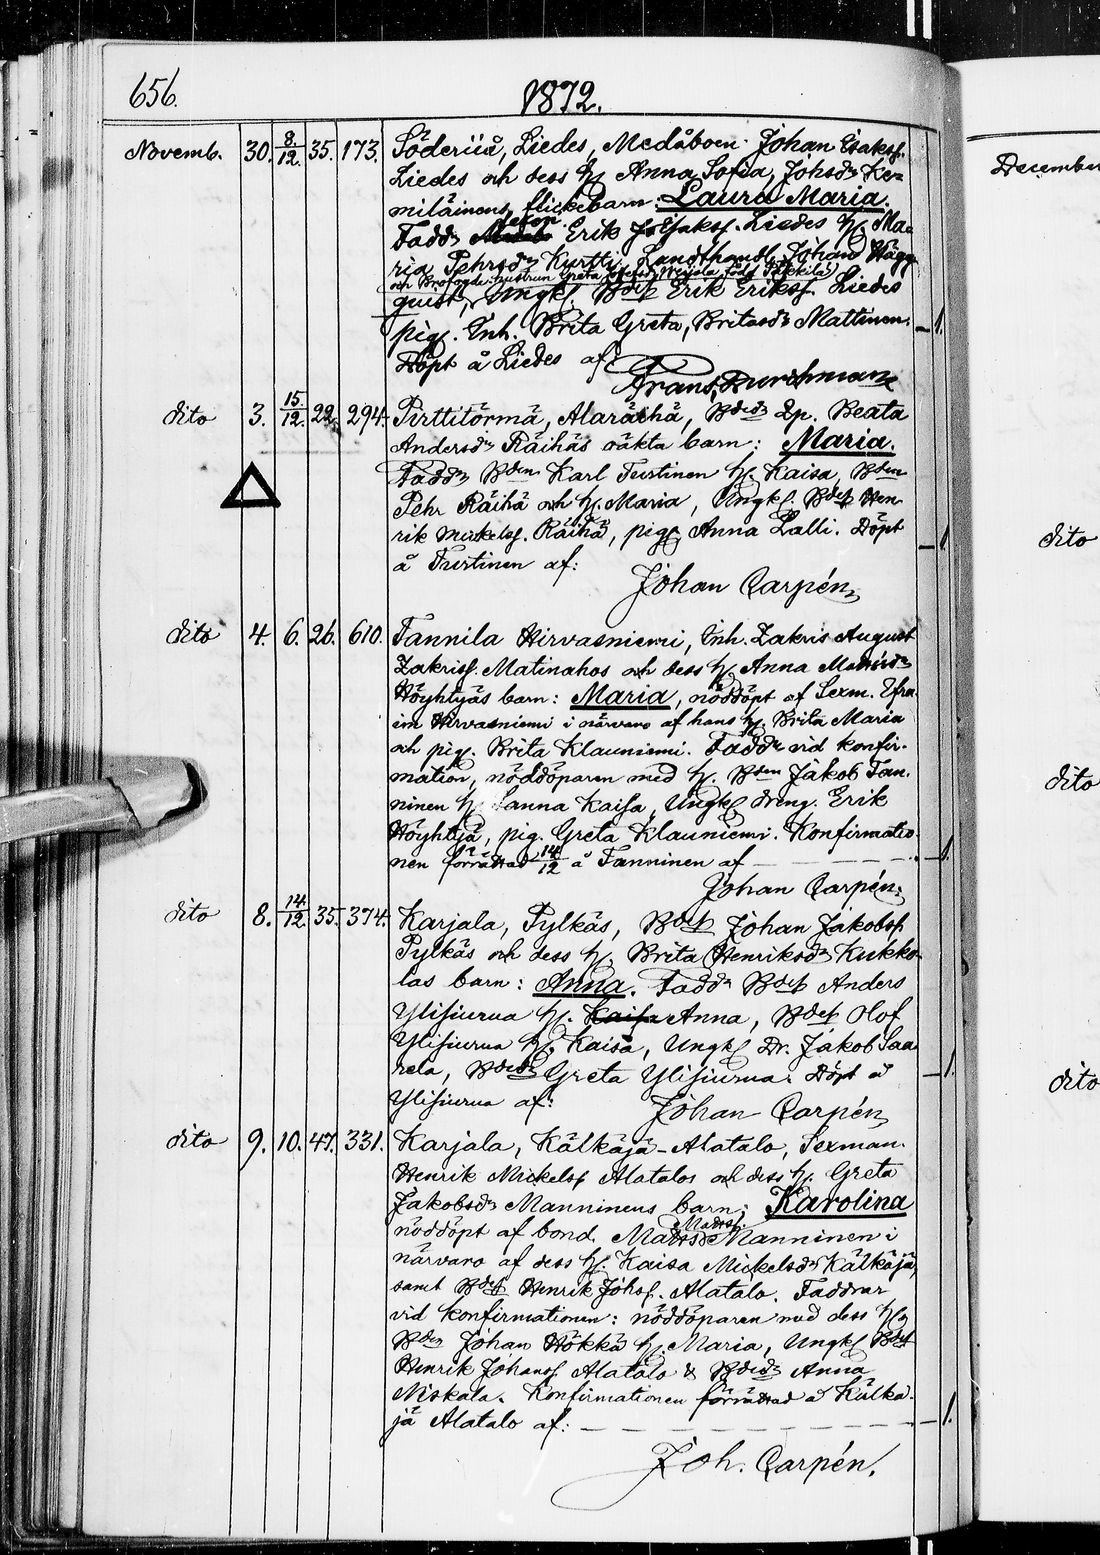 656. 1872.
Novemb. 30. 8/12. 35. 173. Söderiiå, Liedes, Medåboen Johan Esaksf.
Liedes och dess h. Anna Sofia, Johsdr Ke-
miläinens flickebarn: Laura Maria.
Faddr Erik Liedes h. Ma-
ria Pehrsdr Kurtti, Landthandl. Johan Hägg-
och Brofogde-hustrun Greta
quist, Ungk. Bdes Erik Eriksf. Liedes
pig. Inh. Brita Greta, Britasdr Mattinen. 1.
Döpt å Liedes af:
Frans Durchman
dito 3. 15/12. 22. 294. Pirttitörmä, Alaräihä, Bdesdr Lp. Beata
Andersdr Räihäs oäkta barn: Maria.
Faddr Bden Karl Turtinen h. Kaisa, Bden
Pehr Räihä och h. Maria, Ungk. Bdes Hen-
rik Mickelsf. Räihä, pig. Anna Lalli. Döpt 1.
å Turtinen af:
Johan Carpén
dito 4. 6. 26. 610. Tannila Hirvasniemi, Inh. Zakris August
Zakrisf. Matinahos och dess h. Anna
Höyhtyäs barn: Maria, nöddöpt af Sexm. Efra-
im Hirvasniemi i närvaro af hans h. Brita Maria
och pig. Brita Klauniemi. Faddr vid konfir-
mation, nöddöparen med h. Bden Jakob Tan-
ninen h. Sanna Kaisa, Ungk dreng. Erik
Höyhtyä, pig. Greta Klauniemi. Konfirmatio-
nen förrättad 14/12 å Tanninen af 1.
Johan Carpén.
dito 8. 14/12. 35. 374. Karjala, Pylkäs, Bdes Johan Jakobsf
Pylkäs och dess h. Brita Henriksdr Kukko-
las barn: Anna. Faddr Bdes Anders
Ylisiurua h. Kaisa Anna, Bdes Olof
Ylisiurua h. Kaisa, Ungk Dr. Jakob Saa-
rela, Bdesdr Greta Ylisiurua. Döpt å 1.
Ylisiurua af:
Johan Carpén
dito 9. 10. 47. 331. Karjala, Kälkäjä-Alatalo, Sexman.
Henrik Mickelsf Alatalos och dess h. Greta
Jakobsdr Manninens barn: Karolina
nöddöpt af bond. Matts Mattsf. Manninen i
närvaro af dess h. Kaisa Mickelsdr Kälkäjä,
samt Bdes Henrik Johsf. Alatalo. Faddrar
vid konfirmationen: nöddöparen med dess h.
Bden Johan Hökkä h. Maria, Ungk Bdes
Henrik Johansf Alatalo & Bdesdr Anna
Niskala. Konfirmationen förrättad å Kälkä-
jä Alatalo af: 1.
Joh. Carpén.
December
dito
dito
dito